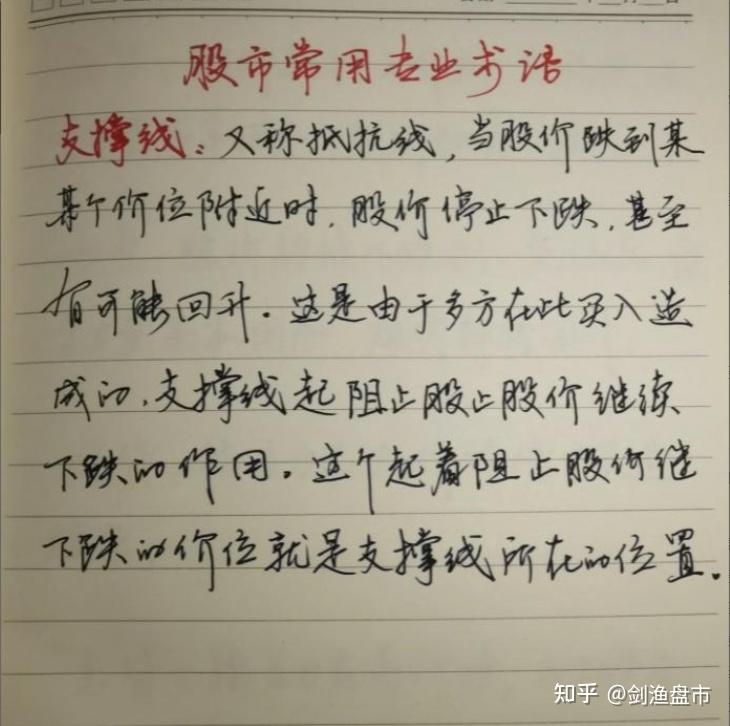 股市常用专业术语
支撑线：又称抵抗线，当股价跌到某
某个价位附近时，股价停止下跌，甚至
有可能回升。这是由于多方在此买入造
成的，支撑线起阻止股止股价继续
下跌的作用。这个起着阻止股价继
下跌的价位就是支撑线所在的位置。
知乎 @剑渔盘市